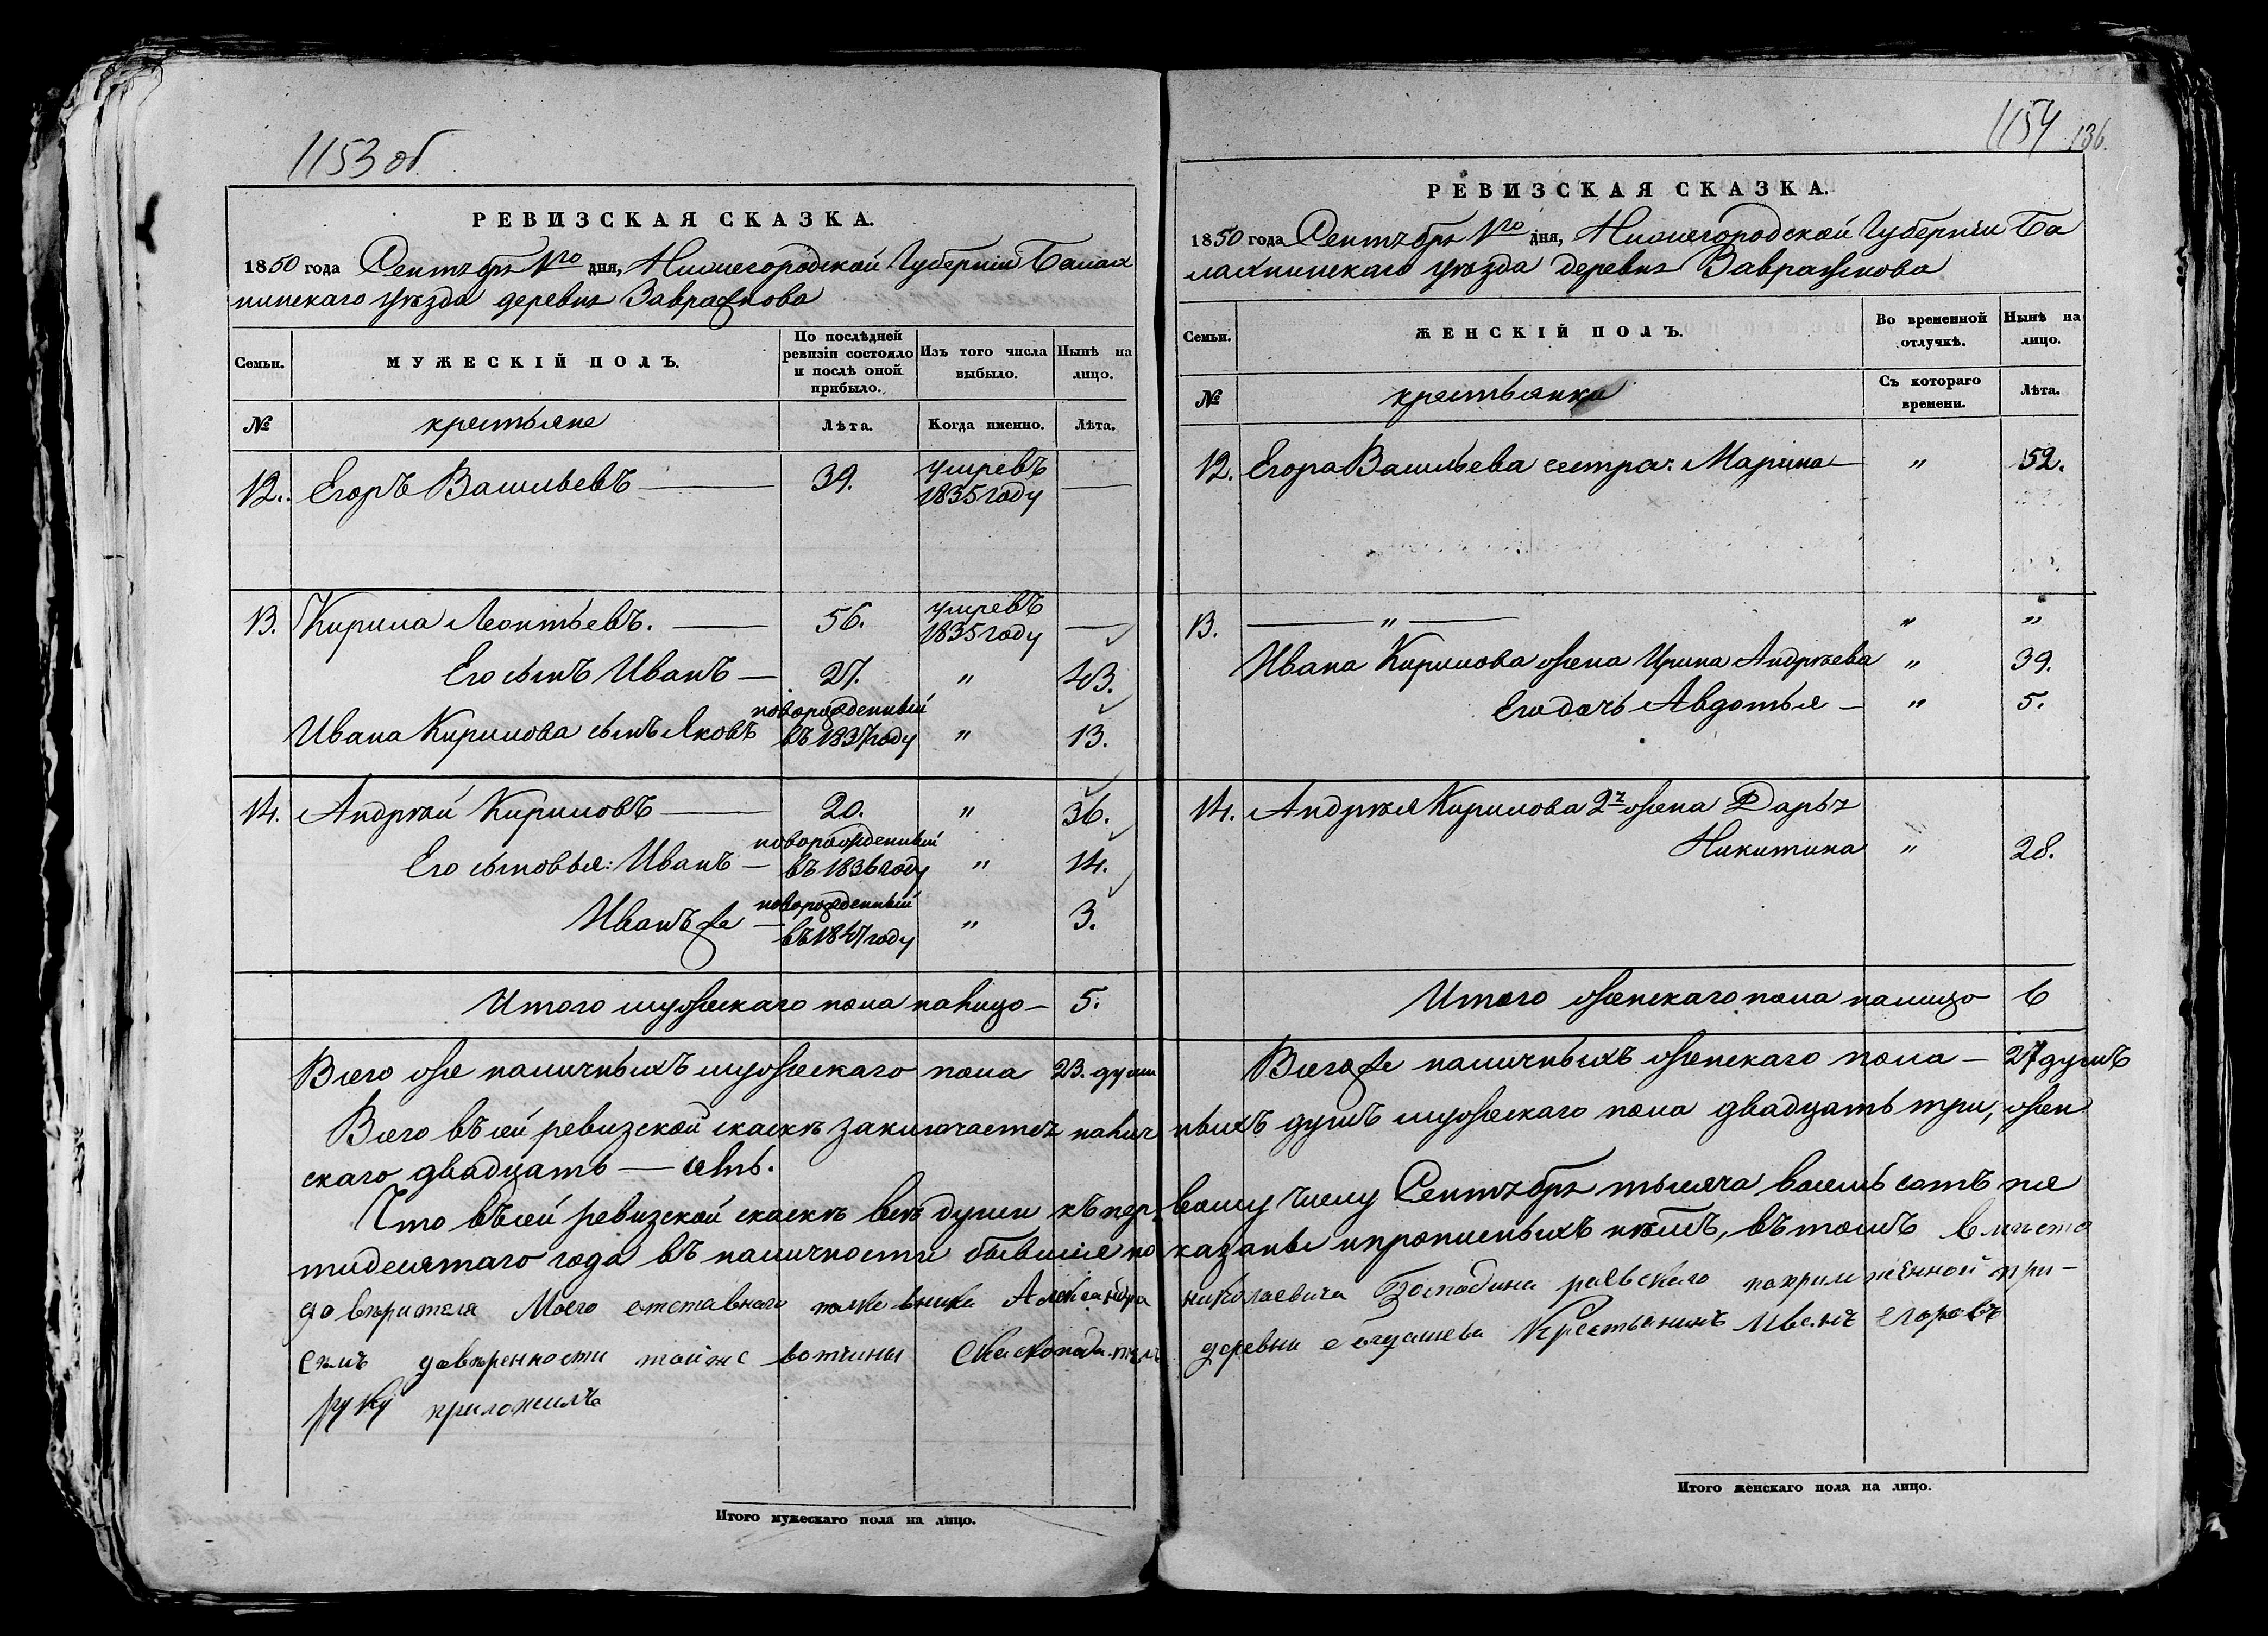 1153 об
РЕВИЗСКАЯ СКАЗКА.
1850 года Сентября 1го дня, Нижегородской Губерніи Балах
нинскаго уѣзда деревня Завражнова
Семьи. МУЖЕСКІЙ ПОЛЪ. По послѣдней ревизіи состояло и послѣ оной прибыло. Изъ того числа выбыло. Нынѣ на лицо.
№ крестьяне Лѣта. Когда именно. Лѣта.
12. Егоръ Васильевъ — 39. умревъ 1835 году —
13. Кирила Леонтьевъ. — 56. умревъ 1835 году —
Его сынъ Иванъ — 27. " 43.
Ивана Кирилова сынъ Яковъ новорожденный въ 1837 году " 13.
14. Андрѣй Кириловъ — 20. " 36.
Его сыновья: Иванъ — новорожденный въ 1836 году " 14.
Иванъ же — новорожденный въ 1847 году " 3.
Итого мужескаго пола налицо — 5.
Всего же наличныхъ мужескаго пола 23. души
1154 136.
РЕВИЗСКАЯ СКАЗКА.
1850 года Сентября 1го дня, Нижегородской Губерніи Ба
лахнинскаго уѣзда деревня Завражнова
Семьи. ЖЕНСКІЙ ПОЛЪ. Во временной отлучкѣ. Нынѣ на лицо.
№ крестьянки Съ котораго времени. Лѣта.
12. Егора Васильева сестра: Марина — " 52.
13. — " — " "
Ивана Кирилова жена Ирина Андрѣева " 39.
Его дочь Авдотья — " 5.
14. Андрѣя Кирилова 2я жена Дарья
Никитина " 28.
Итого женскаго пола налицо 6
Всего же наличныхъ женскаго пола — 27 душъ
Всего въ сей ревизской сказкѣ заключается наличныхъ душъ мужескаго пола двадцать три, жен
скаго двадцать — семь.
Что въ сей ревизской сказкѣ всѣ души къ первому числу Сентября тысяча восемь сотъ пя
тидесятаго года въ наличности бывшіе показаны и прописныхъ нѣтъ, въ томъ вмѣсто
довѣрителя Моего отставнаго полковника Александра николаевича Господина раевскаго по приложенной при
семъ довѣренности тойже вотчины деревни Крестьянинъ Иванъ Егоровъ
руку приложилъ
Итого мужескаго пола на лицо.
Итого женскаго пола на лицо.